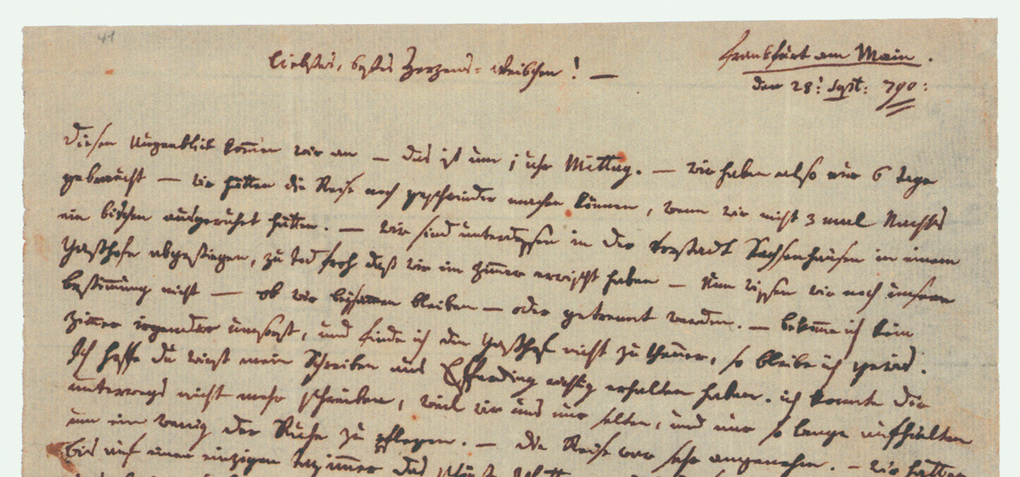 41
liebstes, bestes Herzens-Weibchen! —
Frankfurt am Main.
den 28:t Sept: 790:
diesen Augenblick kommen wir an — das ist um 1 uhr Mittag. — wir haben also nur 6 tage
gebraucht — wir hätten die Reise noch geschwinder machen können, wenn wir nicht 3 mal Nachts
ein bischen ausgeruhet hätten. — wir sind unterdessen in der Vorstadt Sachsenhausen in einem
Gasthofe abgestiegen, zu tod froh daß wir ein Zimmer erwischt haben — Nun wissen wir noch unsere
bestimmung nicht — ob wir beysammen bleiben — oder getrennt werden. — bekomme ich kein
Zimmer irgendwo umsonst, und finde ich die Gasthöfe nicht zu theuer, so bleibe ich gewis.
Ich hoffe du wirst mein Schreiben aus Efferding richtig erhalten haben. ich konnte dir
unterwegs nicht mehr schreiben, weil wir uns nur selten, und nur so lange aufhielten
um ein wenig der Ruhe zu pflegen. — die Reise war sehr angenehm. — wir hatten
bis auf einen einzigen tag immer das schönste Wetter